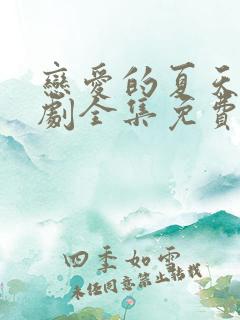 戀愛的夏天
劇全集免費
四季如雲
未經同意禁止轉載